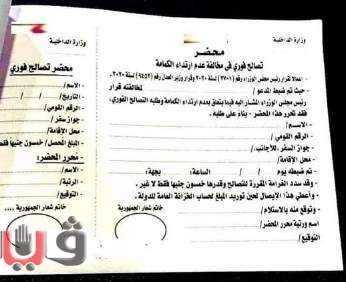 وزارة الداخلية
محضر
تصالح فوري في مخالفة عدم ارتداء الكمامة
لقرار رئيس مجلس الوزراء رقم (٢٧٠١) لسنة ٢٠٢٠ وقرار وزير العدل رقم (٩٤٥٢) لسنة ٢٠٢٠.
- حيث تم ضبط المدعو / لمخالفته قرار
رئيس مجلس الوزراء المشار إليه فيما يتعلق بعدم ارتداء الكمامة وطلبه التصالح الفوري،
فقد تحرر هذا المحضر - بناء على طلبه.
- الاسم/
- الرقم القومي /
- جواز سفر للأجانب.
- محل الإقامة/
- تم ضبطه يوم / / الساعة: بجهة:
- وقد سدد الغرامة المقررة للتصالح وقدرها خمسون جنيها فقط لا غير.
- وأعطي هذا الإيصال لحين توريد المبلغ لحساب الخزانة العامة للدولة.
- وتوقع منه بالاستلام/
اسم ورتبة محرر المحضر/
التوقيع/
خاتم شعار الجمهورية
وزارة الداخلية
محضر تصالح فوري
- الاسم/
التاريخ / /
- الرقم القومي/
جواز سفر/
محل الإقامة/
المبلغ المحصل/ خمسون جنيها فقط
- محرر المحضر:
- الاسم/
- الرتبة/
التوقيع/
خاتم شعار الجمهورية
ڤيتو